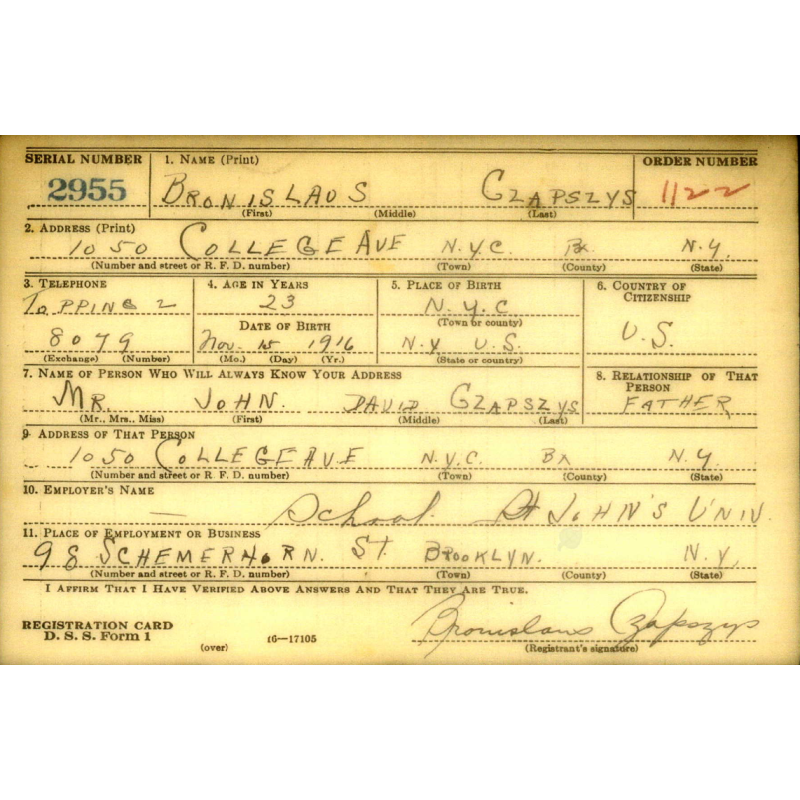 SERIAL NUMBER 1. NAME (Print) ORDER NUMBER
2955 BRONISLAUS CZAPSZYS 1122
(First) (Middle) (Last)
2. ADDRESS (Print)
1050 COLLEGE AVE N.Y.C. Bx. N.Y.
(Number and street or R. F. D. number) (Town) (County) (State)
3. TELEPHONE 4. AGE IN YEARS 5. PLACE OF BIRTH 6. COUNTRY OF CITIZENSHIP
TOPPING 2 23 N.Y.C
DATE OF BIRTH (Town or county) U.S.
8079 Nov. 15 1916 N.Y U.S.
(Exchange) (Number) (Mo.) (Day) (Yr.) (State or country)
7. NAME OF PERSON WHO WILL ALWAYS KNOW YOUR ADDRESS 8. RELATIONSHIP OF THAT PERSON
MR. JOHN. DAVID CZAPSZYS FATHER
(Mr., Mrs., Miss) (First) (Middle) (Last)
9. ADDRESS OF THAT PERSON
1050 COLLEGE AVE N.Y.C. BX N.Y.
(Number and street or R. F. D. number) (Town) (County) (State)
10. EMPLOYER'S NAME
— School St JOHN'S UNIV.
11. PLACE OF EMPLOYMENT OR BUSINESS
98 SCHEMERHORN. ST. BROOKLYN. N.Y.
(Number and street or R. F. D. number) (Town) (County) (State)
I AFFIRM THAT I HAVE VERIFIED ABOVE ANSWERS AND THAT THEY ARE TRUE.
REGISTRATION CARD Bronislaus Czapszys
D. S. S. Form 1 (over) 16—17105 (Registrant's signature)